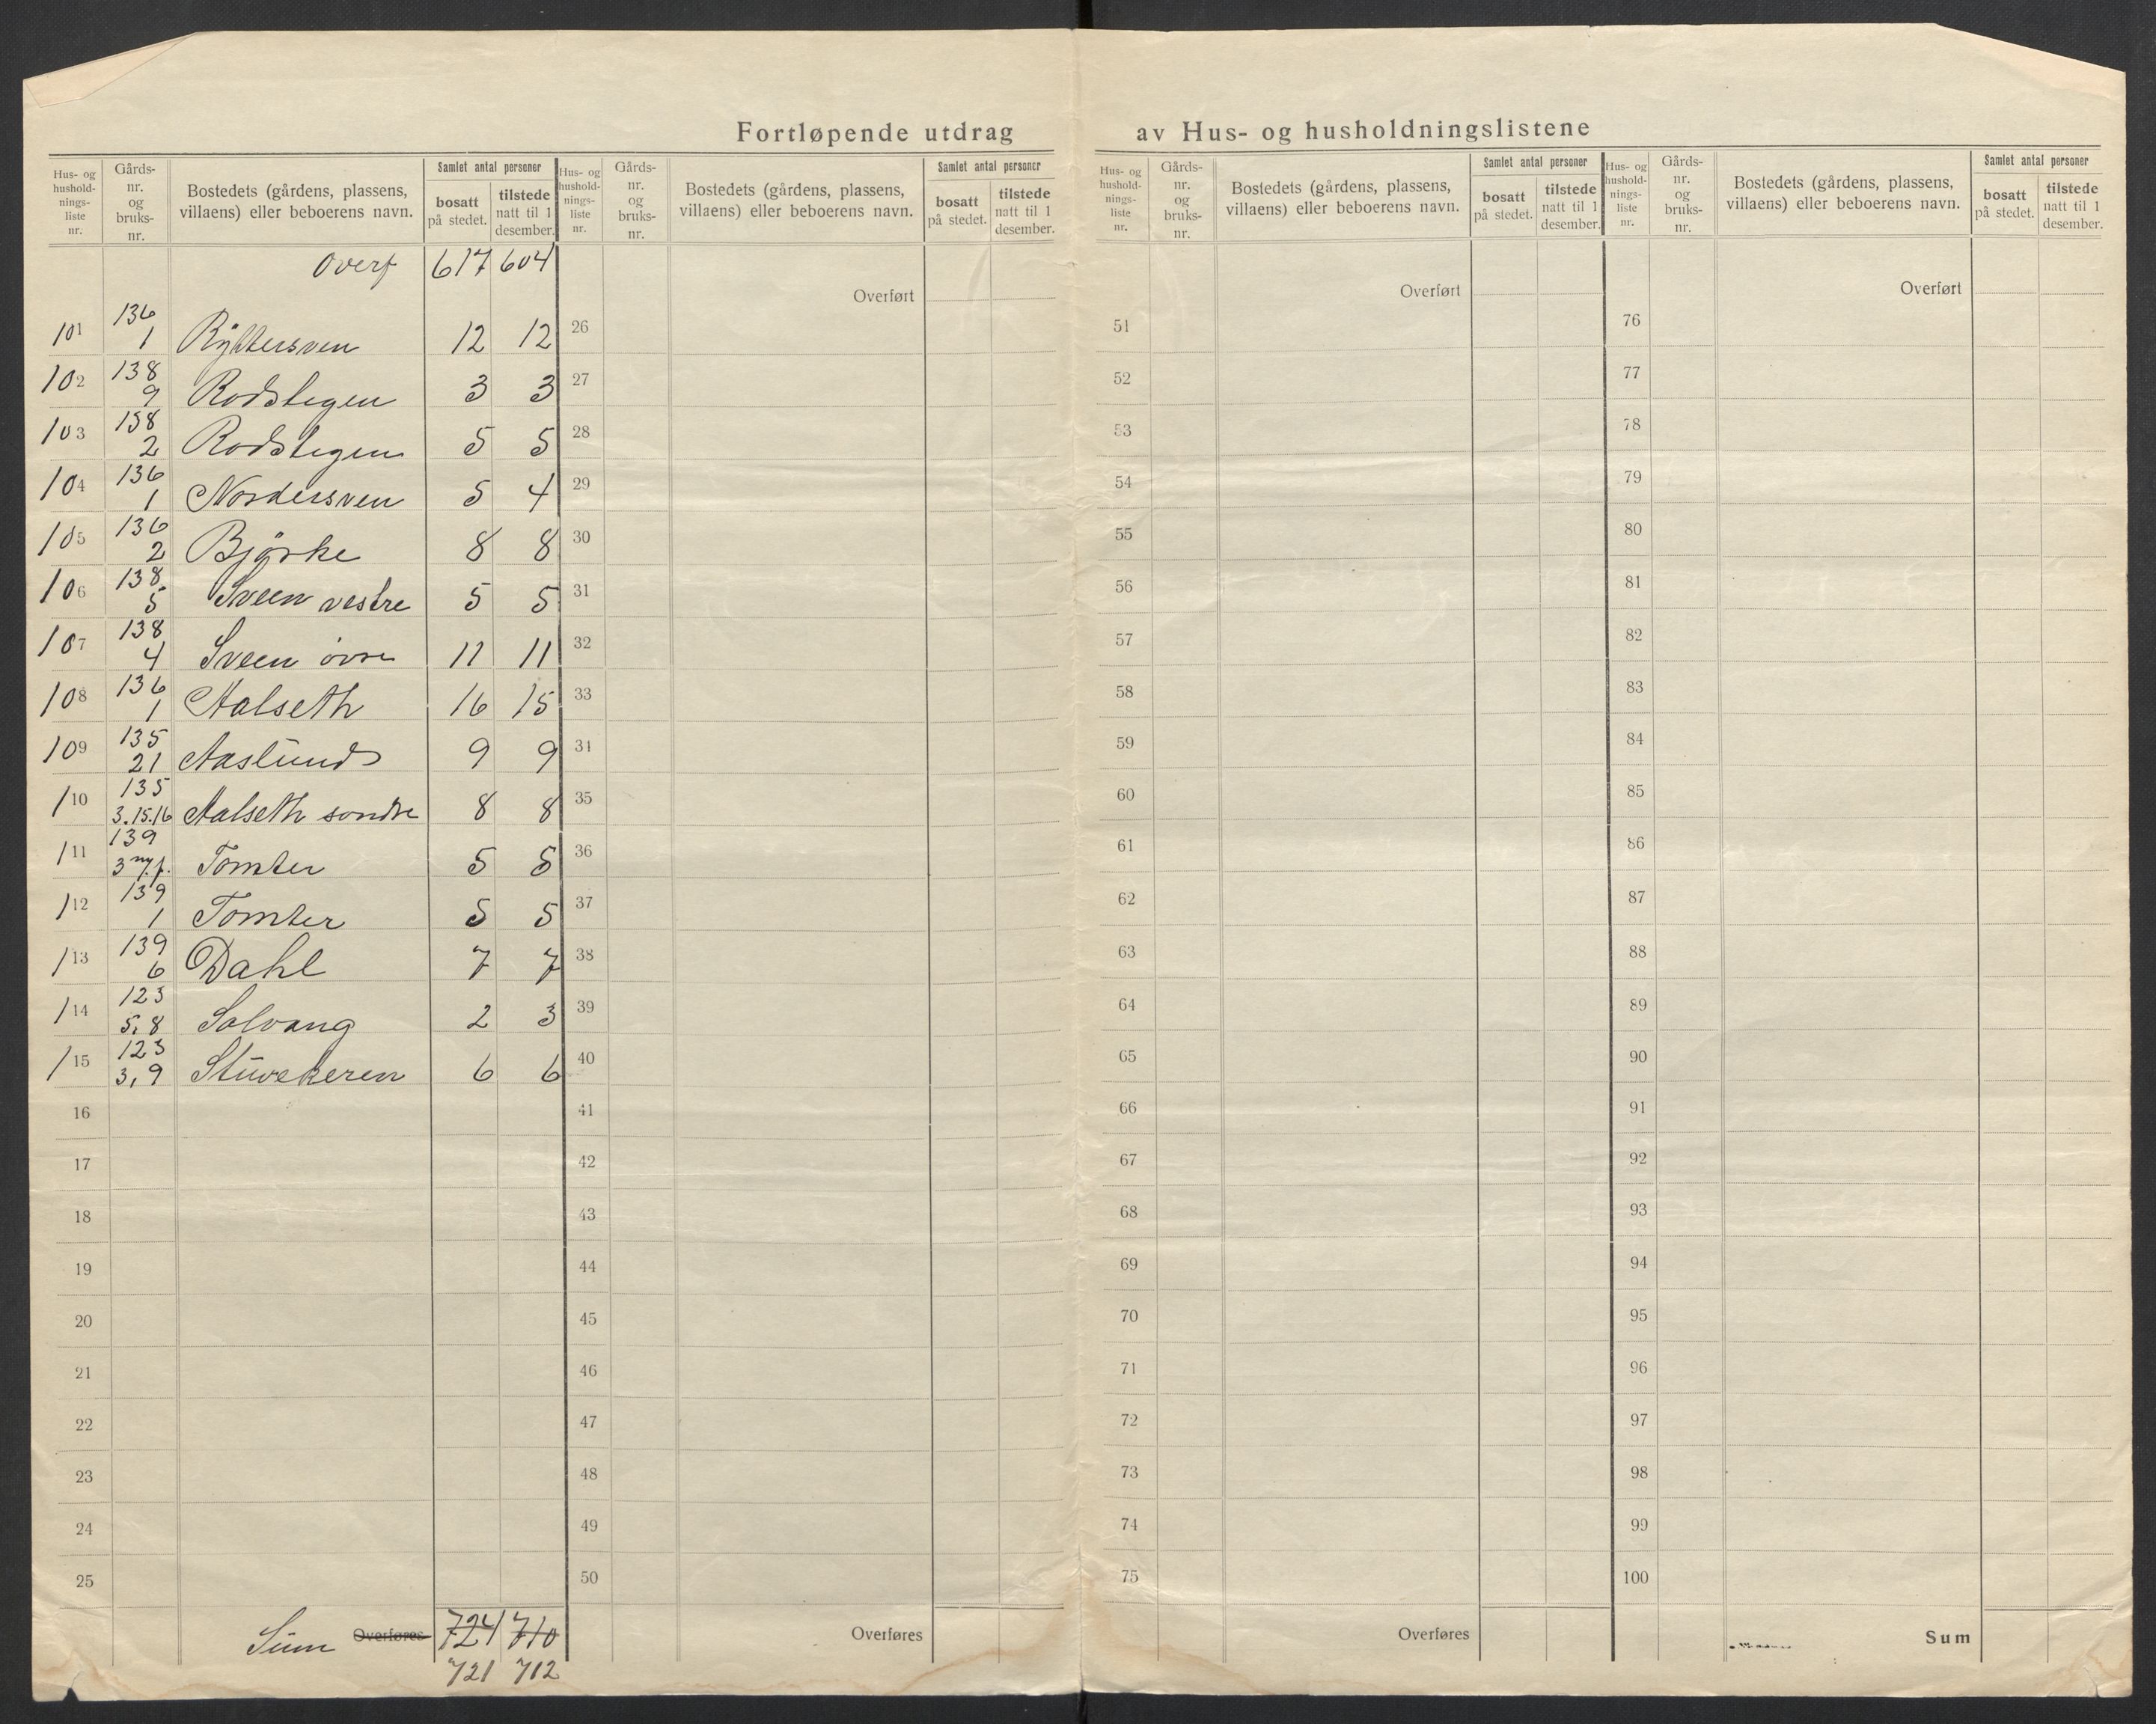 Fortløpende utdrag av Hus- og husholdningslistene
Hus- og hushold-nings-liste nr. | Gårds-nr. og bruks-nr. | Bostedets (gårdens, plassens, villaens) eller beboerens navn. | Samlet antal personer | bosatt på stedet. | tilstede natt til 1 desember.
Overf 617 604
101 136 1 Ryttersven 12 12
102 138 9 Rodstegen 3 3
103 138 2 Rodstegen 5 5
104 136 1 Nordersven 5 4
105 136 2 Bjørke 8 8
106 138 5 Sveen vestre 5 5
107 138 4 Sveen övre 11 11
108 136 1 Aalseth 16 15
109 135 21 Aaslund 9 9
110 135 3.15.16 Aalseth søndre 8 8
111 139 3 Tomter 5 5
112 139 1 Tomter 5 5
113 139 6 Dahl 7 7
114 123 5,8 Solvang 2 3
115 123 3,9 Stuvekeren 6 6
16
17
18
19
20
21
22
23
24
25
Sum Overføres 724 710
721 712
Hus- og hushold-nings-liste nr. | Gårds-nr. og bruks-nr. | Bostedets (gårdens, plassens, villaens) eller beboerens navn. | Samlet antal personer | bosatt på stedet. | tilstede natt til 1 desember.
Overført
26
27
28
29
30
31
32
33
34
35
36
37
38
39
40
41
42
43
44
45
46
47
48
49
50
Overføres
Hus- og hushold-nings-liste nr. | Gårds-nr. og bruks-nr. | Bostedets (gårdens, plassens, villaens) eller beboerens navn. | Samlet antal personer | bosatt på stedet. | tilstede natt til 1 desember.
Overført
51
52
53
54
55
56
57
58
59
60
61
62
63
64
65
66
67
68
69
70
71
72
73
74
75
Overføres
Hus- og hushold-nings-liste nr. | Gårds-nr. og bruks-nr. | Bostedets (gårdens, plassens, villaens) eller beboerens navn. | Samlet antal personer | bosatt på stedet. | tilstede natt til 1 desember.
Overført
76
77
78
79
80
81
82
83
84
85
86
87
88
89
90
91
92
93
94
95
96
97
98
99
100
Sum